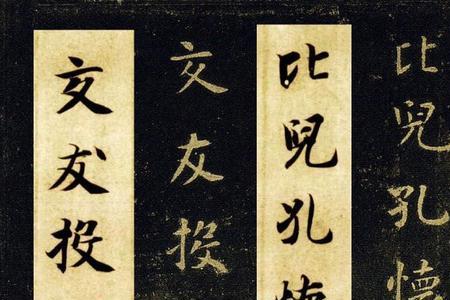 比兒孔懷
比兒孔懷
交友投
交友投